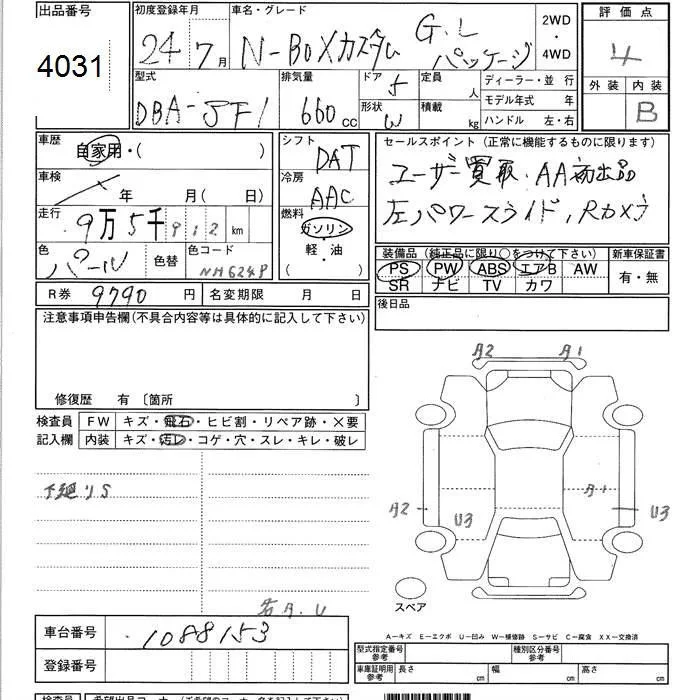 出品番号
4031
初度登録年月
24年7月
車名・グレード
N-BOXカスタム G.L パッケージ
2WD
・
4WD
評価点
4
外装 内装
B
型式
DBA-JF1
排気量
660 cc
ドア 5
形状 W
定員 人
積載 kg
ディーラー・並 行
モデル年式 年
ハンドル 左・右
車歴
自家用・( )
車検
年 月( 日)
走行
9万5千912 km
色
パール
色替
色コード
NH624P
シフト
DAT
冷房
AAC
燃料
ガソリン
・
軽・油
( )
セールスポイント (正常に機能するものに限ります)
ユーザー買取.AA初出品
左パワースライド,Rカメラ
装備品 (純正品に限り○をつけて下さい)
新車保証書
PS PW ABS エアB AW
SR ナビ TV カワ
有・無
R券 9790 円
名変期限 月 日
後日品
注意事項申告欄(不具合内容等は具体的に記入して下さい)
修復歴 有 〔箇所 〕
検査員
記入欄
FW キズ・飛石・ヒビ割・リペア跡・×要
内装 キズ・汚レ・コゲ・穴・スレ・キレ・破レ
下廻りS
名A.U
A2 A1
A2 U3 A1 U3
スペア
車台番号
1088153
登録番号
A-キズ E-エクボ U-凹み W-補修跡 S-サビ C-腐食 XX-交換済
型式指定番号
参考
種別区分番号
参考
車庫証明用
参考
長さ cm 幅 cm 高さ cm
検査員
希望出品コーナー(ご希望のコーナー名を記入して下さい)